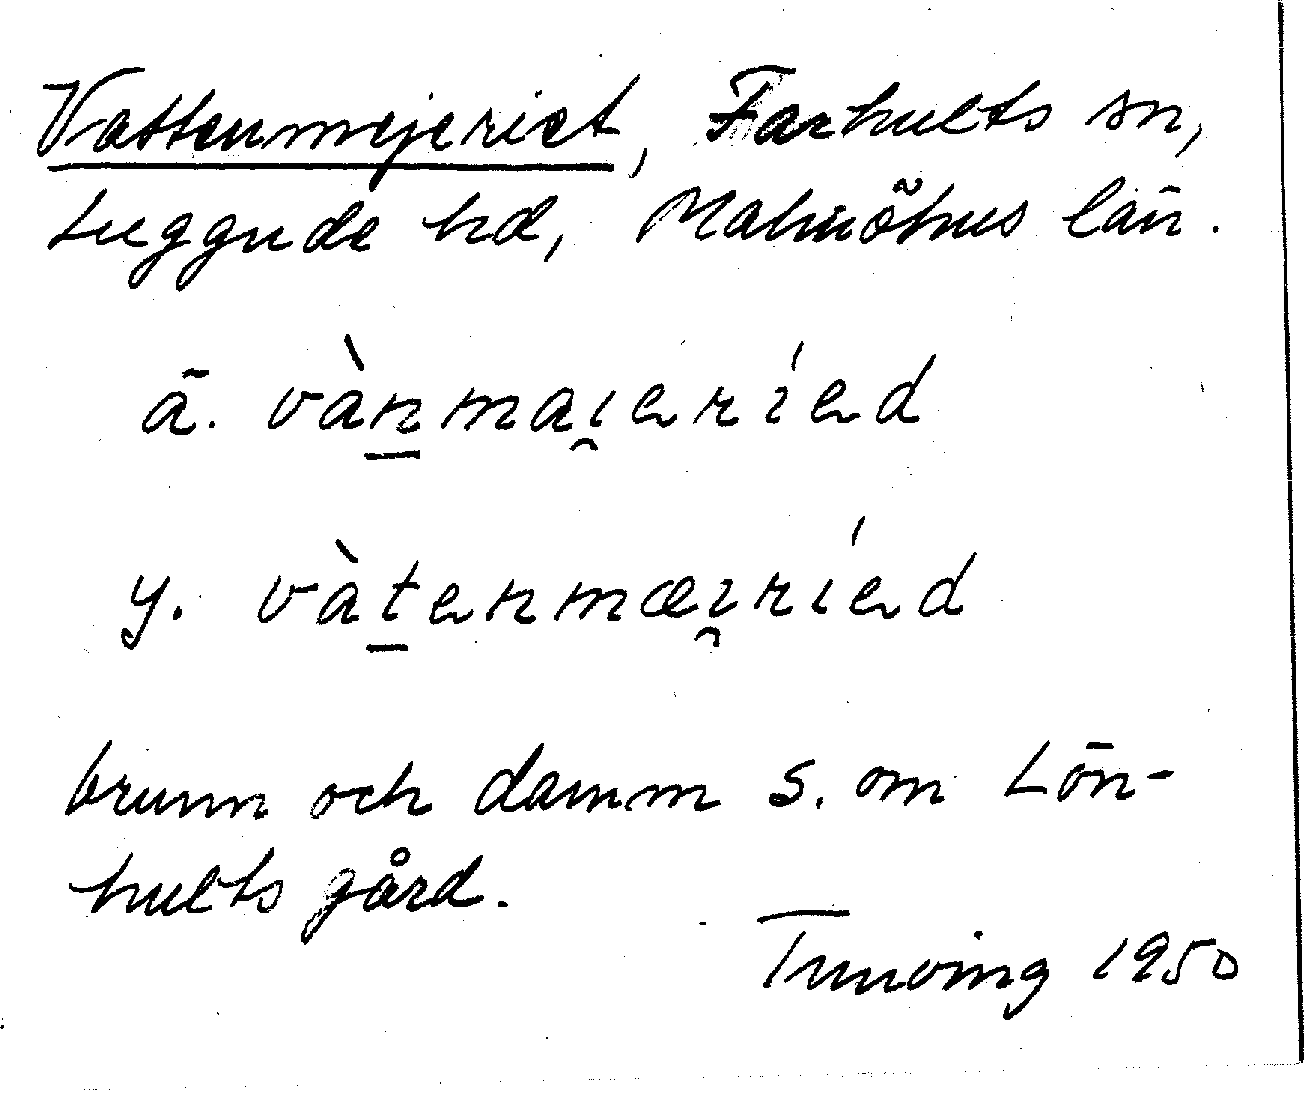 Vattenmejeriet, Farhults sn,
Luggude hd, Malmöhus län.
ä. vànmai̯eríed
y. vàtenmæi̯ríed
brunn och damm S. om Lön-
hults gård.
Tunving 1950